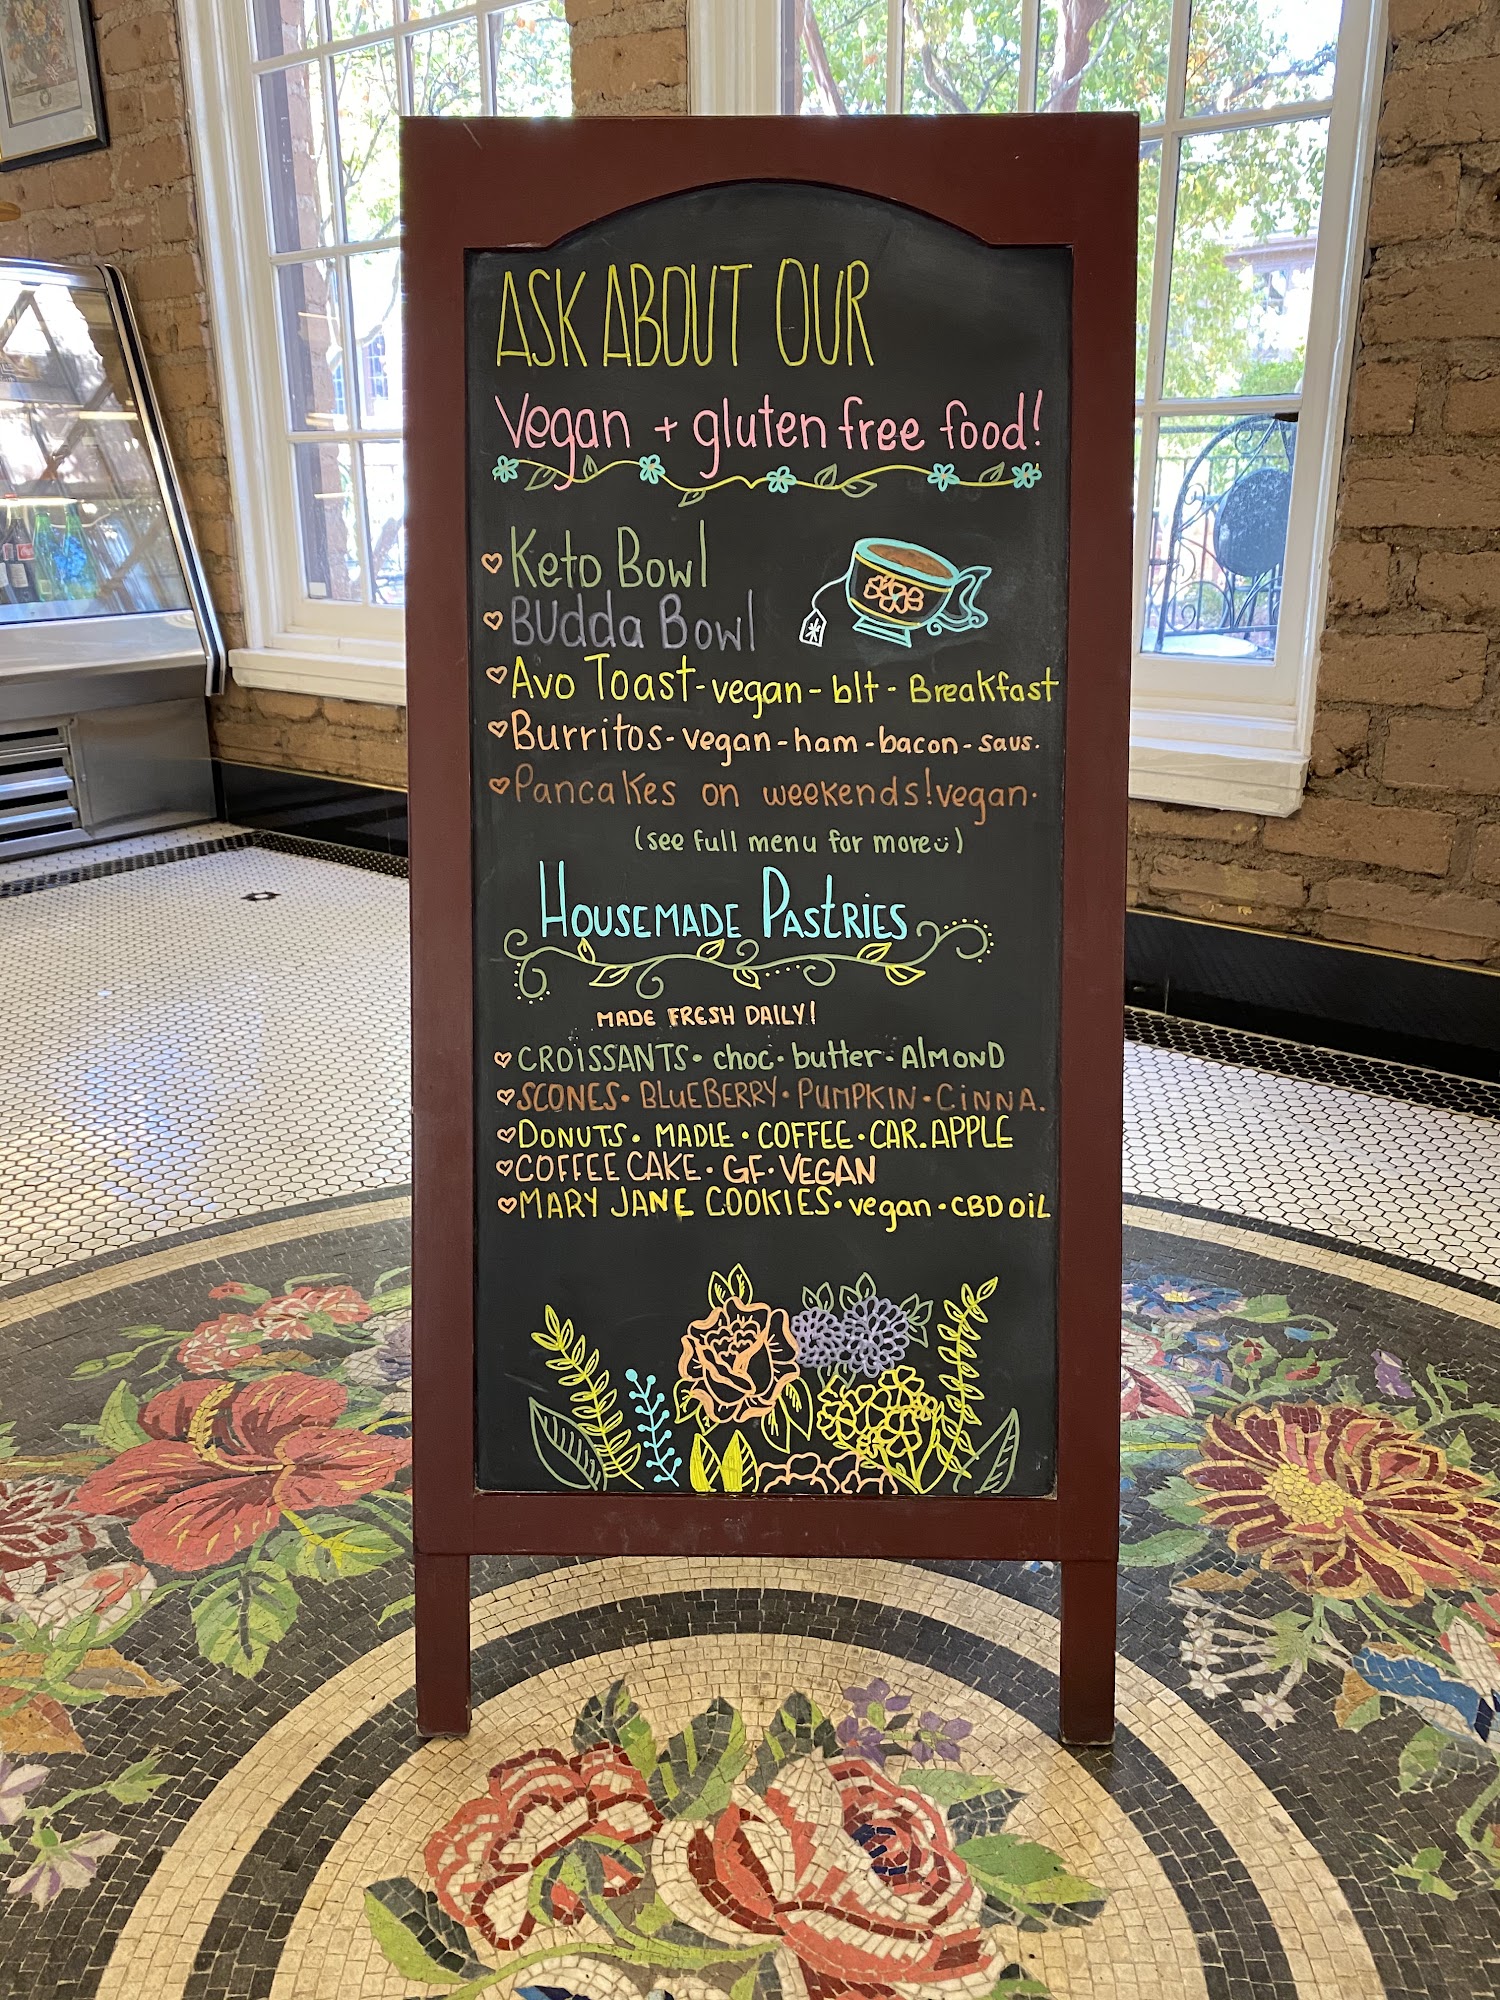 ASK ABOUT OUR
Vegan + gluten free food!
Keto Bowl
BUdda Bowl
Avo Toast-vegan-blt-Breakfast
Burritos-vegan-ham-bacon-saus.
Pancakes on weekends!vegan.
(see full menu for more)
HOUSEMADE PASTRIES
MADE FRESH DAILY!
CROISSANTS• choc • butter • AlMOND
SCONES• BLUEBERRY • PUMPKIN • CiNNA.
DONUTS • MADLE • COFFEE • CAR. APPLE
COFFEE CAKE • GF • VEGAN
MARY JANE COOKIES • vegan • CBD oiL